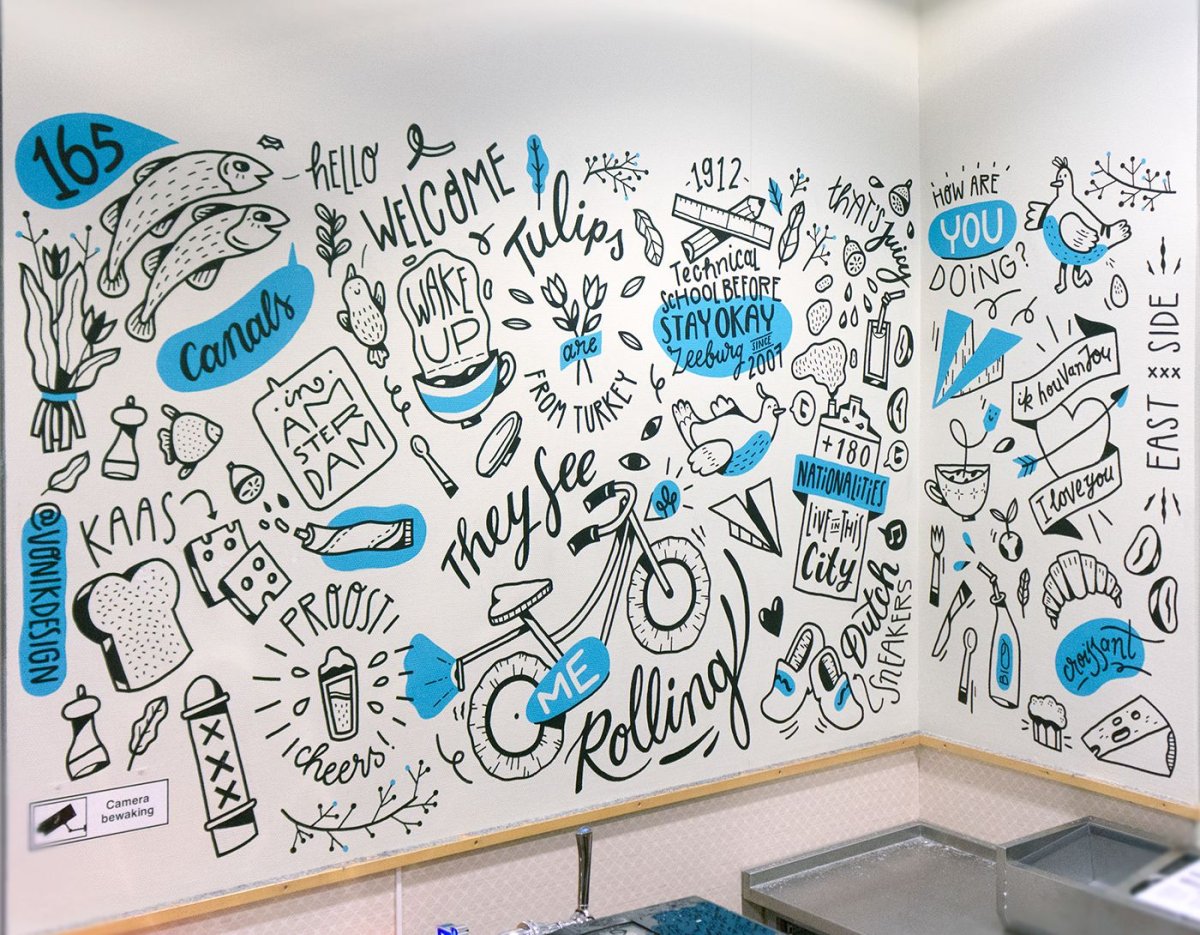 165
HELLO
canals
WELCOME
WAKE
UP
in
AM
STER
DAM
Tulips
are
FROM TURKEY
1912
Technical
SCHOOL BEFORE
STAYOKAY
Zeeburg SINCE
2007
THAT'S
Juicy
+180
NATIONALITIES
LIVE IN THIS
City
They See
ME
Rolling
Dutch
SNEAKERS
KAAS
@VANIKDESIGN
PROOST!
cheers!
XXX
Camera
bewaking
HOW ARE
YOU
DOING?
ik hou van jou
I love you
EAST xxx SIDE
croissant